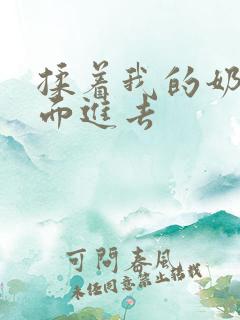 揉着我的奶
而进去
可问春风
未经同意禁止转载